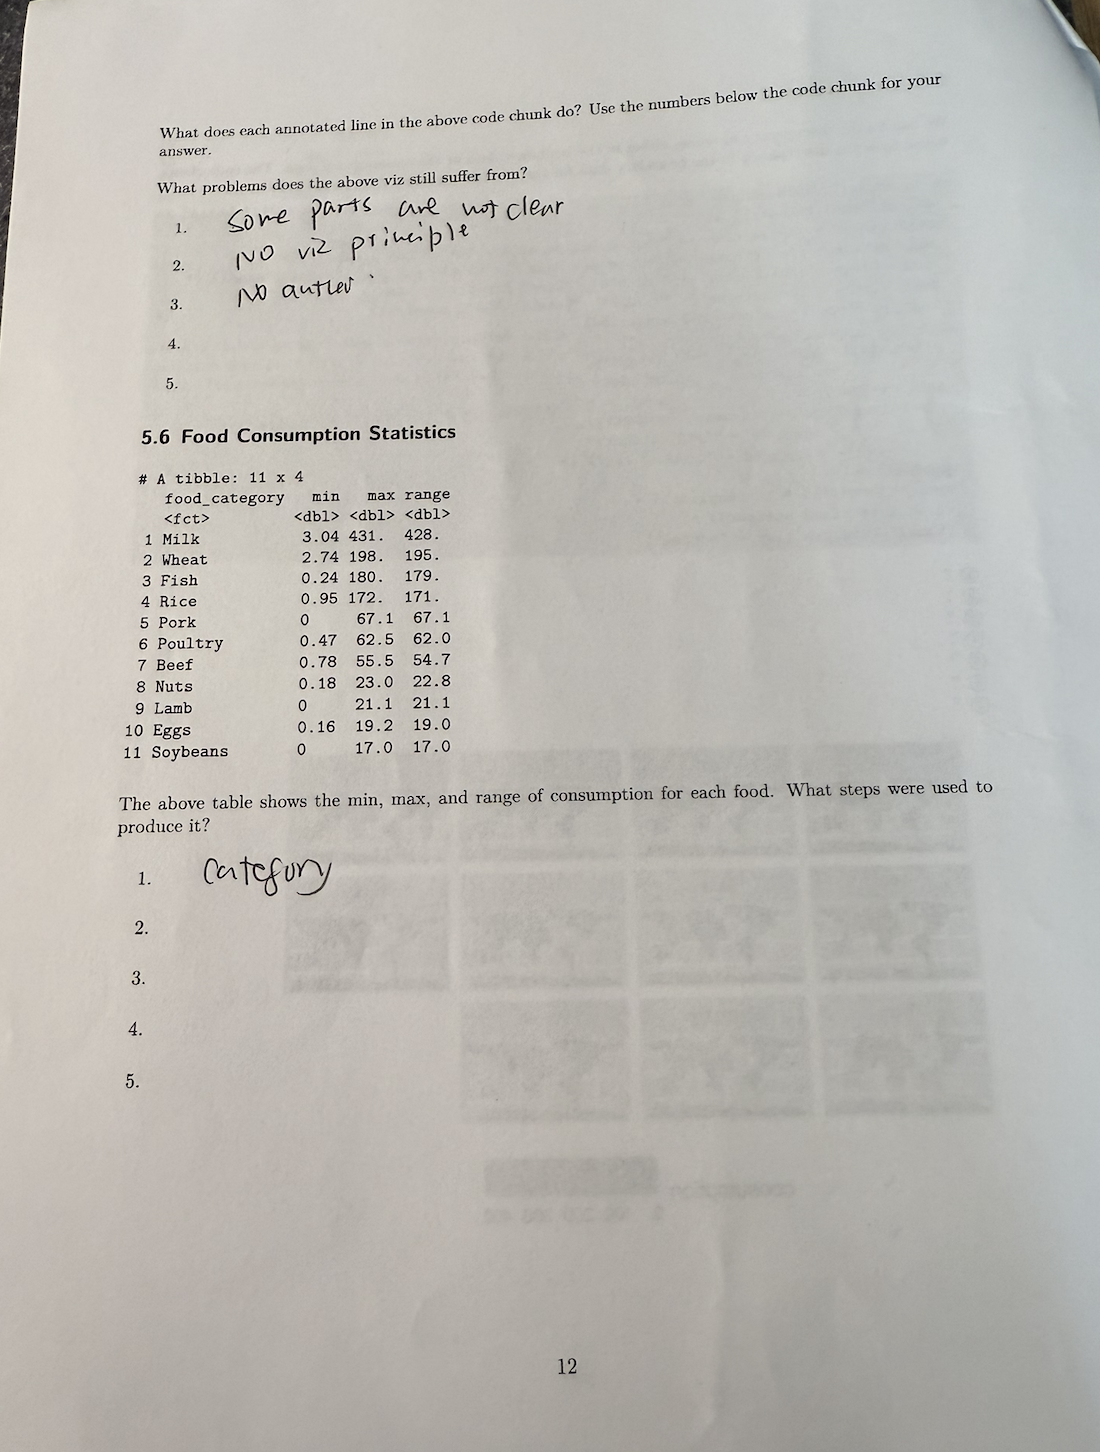 What does each annotated line in the above code chunk do? Use the numbers below the code chunk for your
answer.
What problems does the above viz still suffer from?
1. Some parts are not clear
2. NO viz principle
3. No
4.
5.
5.6 Food Consumption Statistics
# A tibble: 11 x 4
food_category min max range
<fct> <dbl> <dbl> <dbl>
1 Milk 3.04 431. 428.
2 Wheat 2.74 198. 195.
3 Fish 0.24 180. 179.
4 Rice 0.95 172. 171.
5 Pork 0 67.1 67.1
6 Poultry 0.47 62.5 62.0
7 Beef 0.78 55.5 54.7
8 Nuts 0.18 23.0 22.8
9 Lamb 0 21.1 21.1
10 Eggs 0.16 19.2 19.0
11 Soybeans 0 17.0 17.0
The above table shows the min, max, and range of consumption for each food. What steps were used to
produce it?
1. Category
2.
3.
4.
5.
12